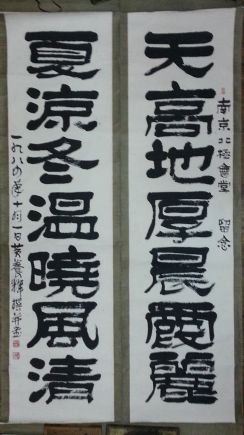 天高地厚晨霞麗
南京 留念
夏涼冬溫曉風清
一九八四年十月一日黃養輝撰并書